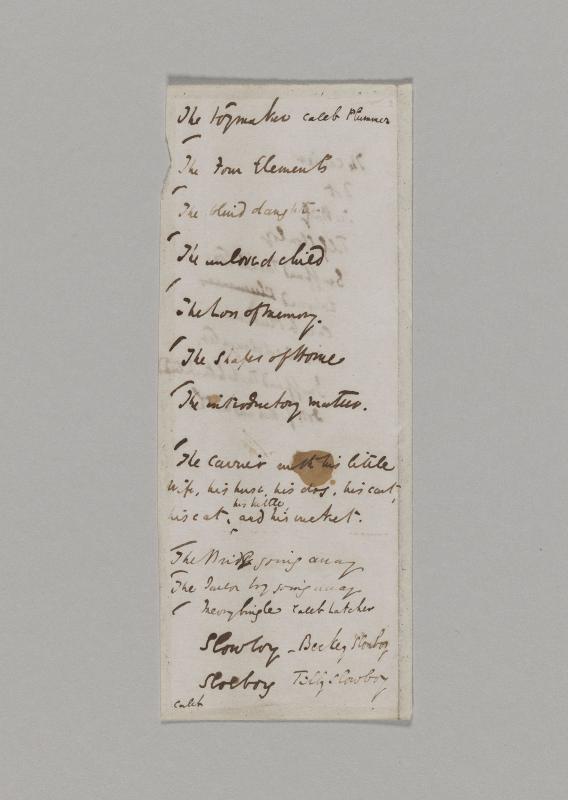 The toymaker Caleb Plummer
The Four Elements
The blind daughter
The unloved child
The Loss of Memory.
The Shapes of Home
The introductory matter.
The Carrier with his little
Wife, his horse, his dog, his cart,
his kettle,
his cat, and his cricket.
The Bride going away
The going away
Caleb
Slowboy - Becky Slowboy
Sloeboy Tilly Slowboy
Caleb